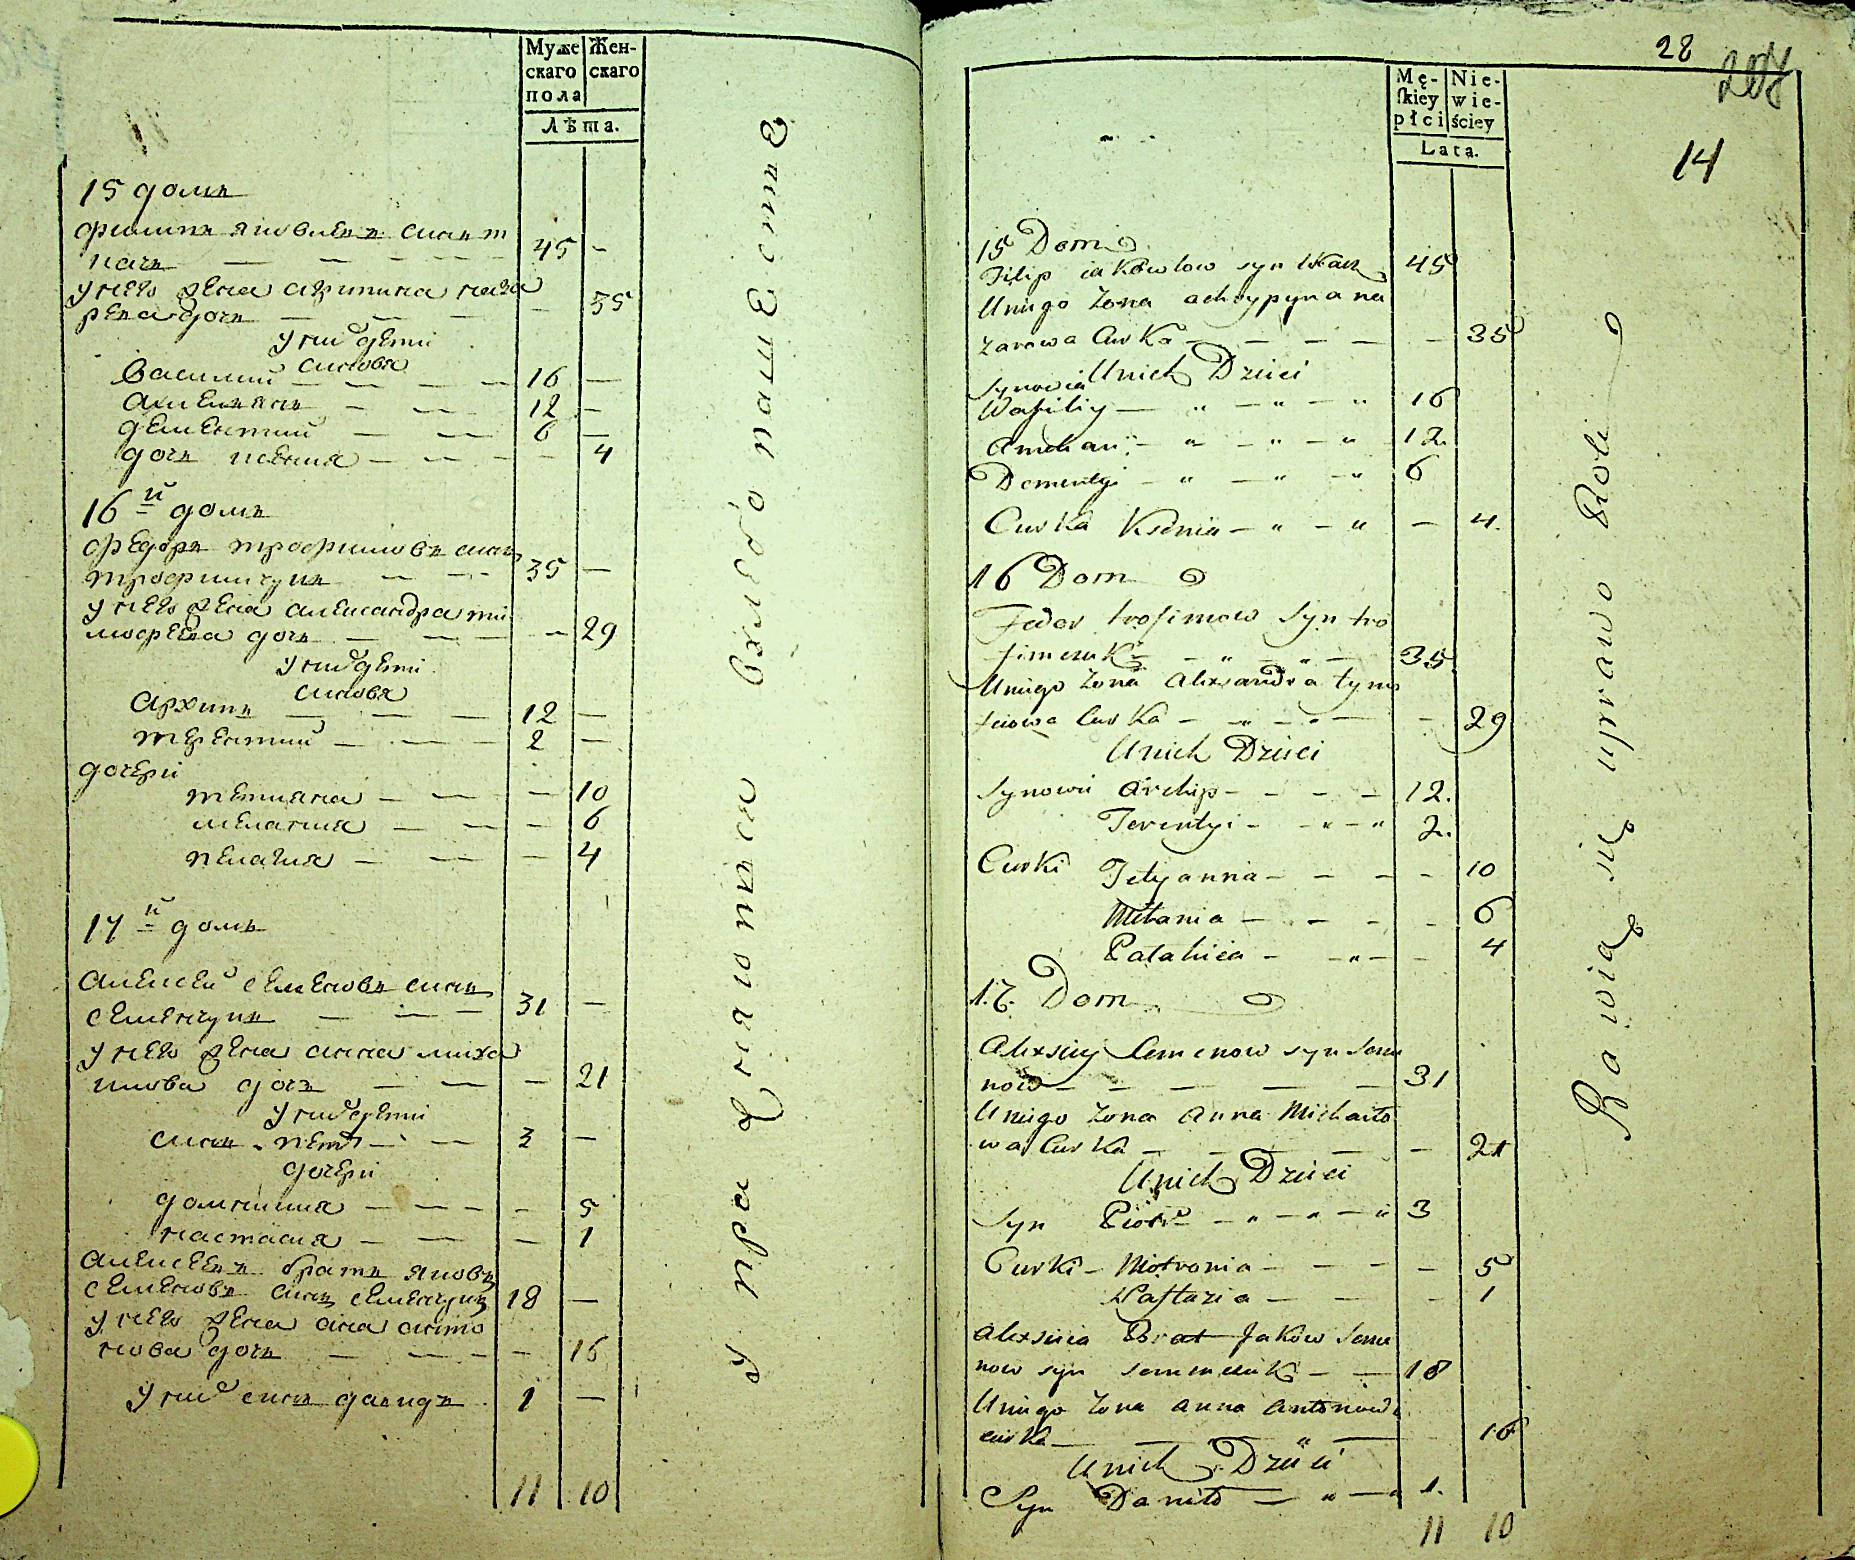 Муже Жен-
скаго скаго
пола
Лѣта.
15 домъ
филипъ яковлевъ синъ т
качъ — — — — — 45 —
у него жена агрипина наза
рева дочъ — — — — 35
у ниꙋ дети
синовя
Василий — — — — 16 —
амелянъ — — — 12 —
дементий — — — 6 —
дочъ ксения — — — — 4
16й домъ
федоръ трофимовъ синъ
трофимчукъ — — — 35 —
у него жена александра ти
мофеева дочъ — — — — 29
у них дети
синовя
архипъ — — — 12 —
терентий — — — 2 —
дочери
тетияна — — — 10
мелания — — — 6
пелагия — — — 4
17й домъ
алексей семеновъ синъ
семенчукъ — — — 31 —
у него жена анна миха
илова дочъ — — — 21
у них дети
синъ петр — — 3 —
дочери
домникия — — — — 5
настасия — — — 1
алексеевъ братъ яковъ
семеновъ синъ семенчукъ 18 —
у него жена ана анто
нова дочъ — — — — 16
у них синъ данидъ 1 —
11 10
Упражняются в хлебопашестве
28
208
14
Mę- Nie-
ſkiey wie-
płci ściey
Lata.
15 Dom
Filip iakowlow syn tkacz 45
Uniego Zona achrypyna na
zarowa Curka — — — — — 35
Unich Dzieci
Synowie
Waſiliy — " — " — " 16
Amelian — " — " — " 12.
Dementyi — " — " — " 6
Curka Ksenia — " — " — 4.
16 Dom
Fedor trofimow Syn tro
fimczuk — " — " — 35
Uniego Zona Alexandra tymo
feiowa Curka — " — " — — 29
Unich Dzieci
Synowie Archip — — — — 12.
Terentyi — — " — " 2.
Curki Tetyanna — — — — 10
Melania — — — — 6
Palahiea — — " — — 4
17. Dom
Alexsiey Semenow syn Seme
now — — — — — 31
Uniego Zona Anna Michaiło
wa Curka — — — — — 21
Unich Dzieci
Syn Piotr — " — " — " 3
Curki — Motronia — — — — 5
Naſtazia — — — — 1
Alexsieia Brat Jaków Seme
now syn semenczuk — — 18
Uniego Zona Anna Antonowa
curka — — " — — 16
Unich Dzieci
Syn Daniło — " — " 1.
11 10
Bawią się uprawo Roli